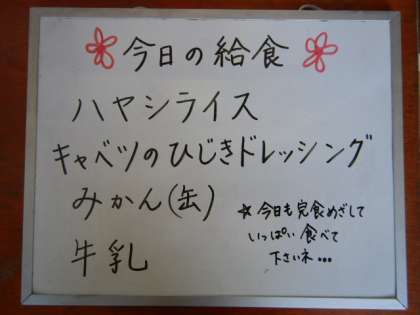 今日の給食
ハヤシライス
キャベツのひじきドレッシング
みかん(缶)
牛乳
☆今日も完食めざして
いっぱい食べて
下さいネ…